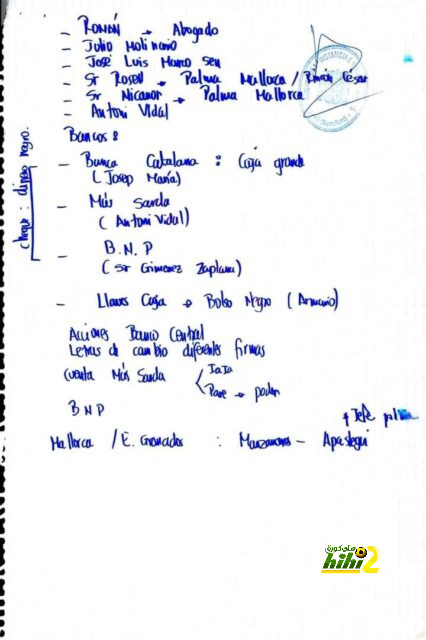 - ROMÁN → Abogado
- Julio Molinario
- José Luis Marco Seu
- Sr Rosell → Palma Mallorca / Román César
- Sr Nicanor → Palma Mallorca
- Antoni Vidal
Bancos:
- Banca Catalana : Caja grande
(Josep María)
- Más Sarda
(Antoni Vidal)
- B.N.P
(Sr Gimenez Zaplana)
- Llaves Caja → Bolso Negro (Armario)
Acciones Banco Central
Letras de cambio diferentes firmas
Cuenta Más Sarda
Pare → poder
BNP
Mallorca / E. Granados : Manzanares - Apastegui
cheque: dinero negro.
هاي كورة
hihi2